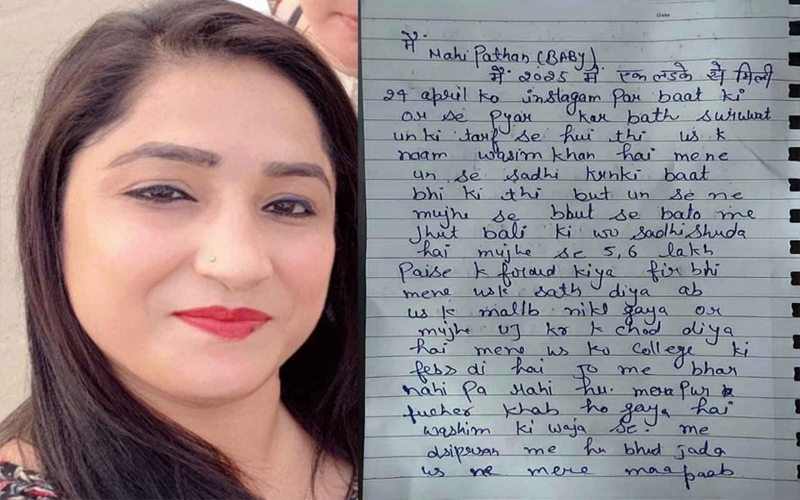 Date
मैं
Mahi Pathan (BABY)
मैं 2025 में एक लडके से मिली
24 april ko instagam par baat ki
or se pyar kar bath suruwat
un ki tarf se hui thi us k
naam wasim khan hai mene
un se sadhi krnki baat
bhi ki thi but un se ne
mujhe se bhut se bato me
jhut bali ki wo sadhishuda
hai mujhe se 5,6 lakh
Paise k foraud kiya fir bhi
mene usk sath diya ab
us k matlb nikl gaya or
mujhe uj kr k chod diya
hai mene us ko college ki
fess di hai jo me bhar
nahi pa rahi hu. mera pur
fucher khab ho gaya hai
washim ki waja se. me
dsiprsan me hu bhud jada
us ne mere maa paab